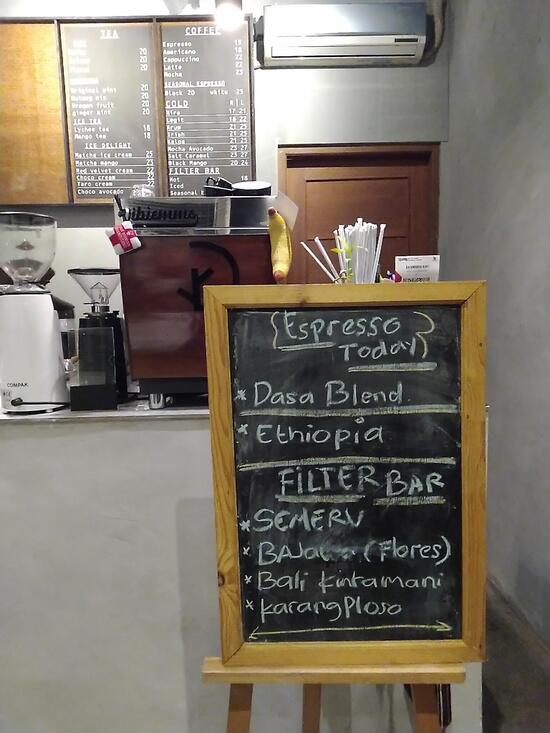 TEA
20
20
20
20
Original mint 20
Nutmeg mint 20
Dragon fruit 20
ginger mint 20
ICE TEA
Lychee tea 18
Mango tea 18
ICE DELIGHT
Matcha ice cream 25
Matcha mango 23
Red velvet cream 22
Choco cream 22
Taro cream 22
Choco avocado
COFFEE
Espresso
Americano
Cappuccino
Latte
Mocha
SEASONAL ESPRESSO
Black 20 white 25
COLD R|L
Kira 17 21
Legit 18 22
Arum 21 25
Irish 21 25
Mocha Avocado 23 27
Salt Caramel 23 27
Black Mango 20 24
FILTER BAR
Hot 18
Iced
Seasonal
COMPAK
{Espresso
Today}
* Dasa Blend
* Ethiopia
FILTER BAR
* SEMERU
* (Flores)
* Bali Kintamani
* Karangploso